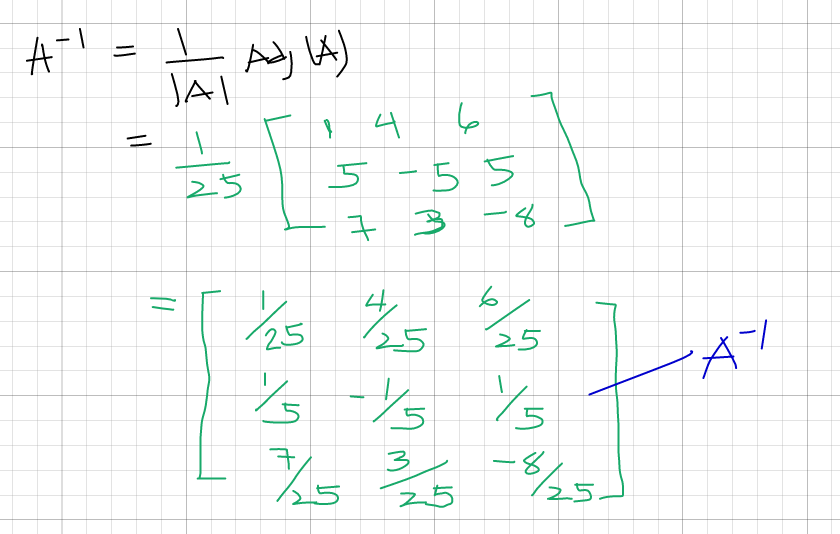 A⁻¹ = 1/|A| Adj(A)
= 1/25 [ 1 4 6
5 -5 5
7 3 -8 ]
= [ 1/25 4/25 6/25
1/5 -1/5 1/5
7/25 3/25 -8/25 ] A⁻¹